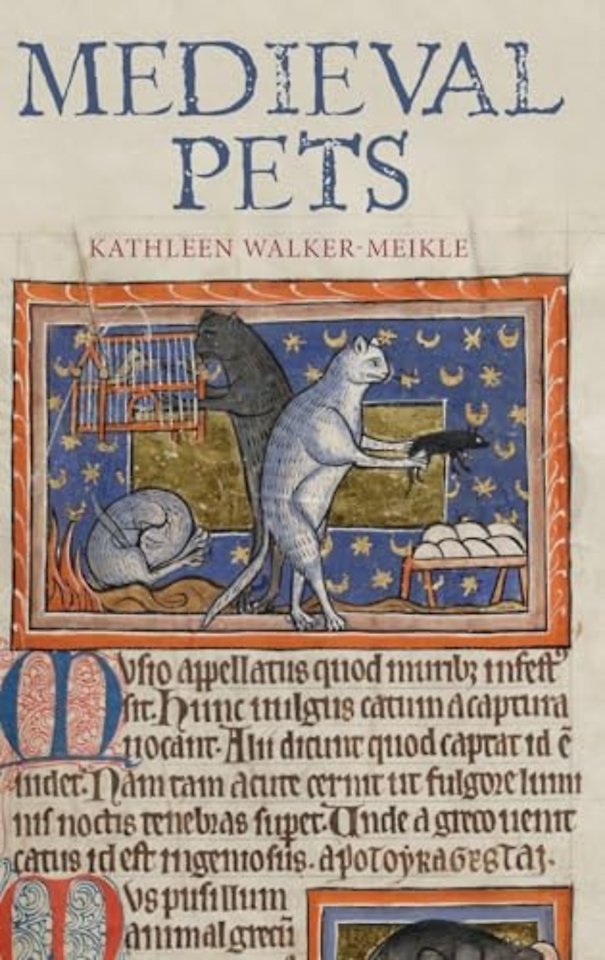 MEDIEVAL
PETS
KATHLEEN WALKER-MEIKLE
Musio appellatus quod muribꝫ infestꝰ
sit. Hunc uulgus catum a captura
uocant. Alii dicunt quod captat id ē
uidet. Nam tam acute cernit ut fulgore lumi
nis noctis tenebras superet. Unde a greco uenit
catus id est ingeniosus.
Mus pusillum
animal grecū